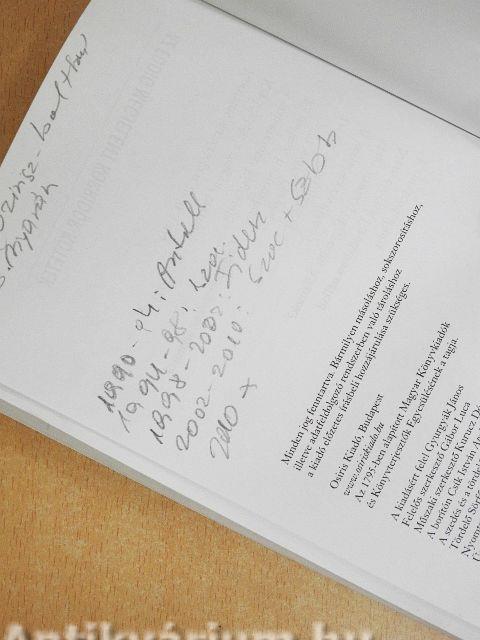 nyarán
1990-94: Antall
1994-98: Szoc.
1998-2002: Fidesz
2002-2010: Szoc + Szabad
2010 →
Minden jog fenntartva. Bármilyen másoláshoz, sokszorosításhoz,
illetve adatfeldolgozó rendszerben való tároláshoz
a kiadó előzetes írásbeli hozzájárulása szükséges.
Osiris Kiadó, Budapest
www.osiriskiado.hu
Az 1795-ben alapított Magyar Könyvkiadók
és Könyvterjesztők Egyesülésének a tagja.
A kiadásért felel Gyurgyák János
Felelős szerkesztő Gábor Luca
Műszaki szerkesztő Kurucz Dó
A borítón Csík István
A szedés és a tördel
Tördelő
Antikvárium.hu